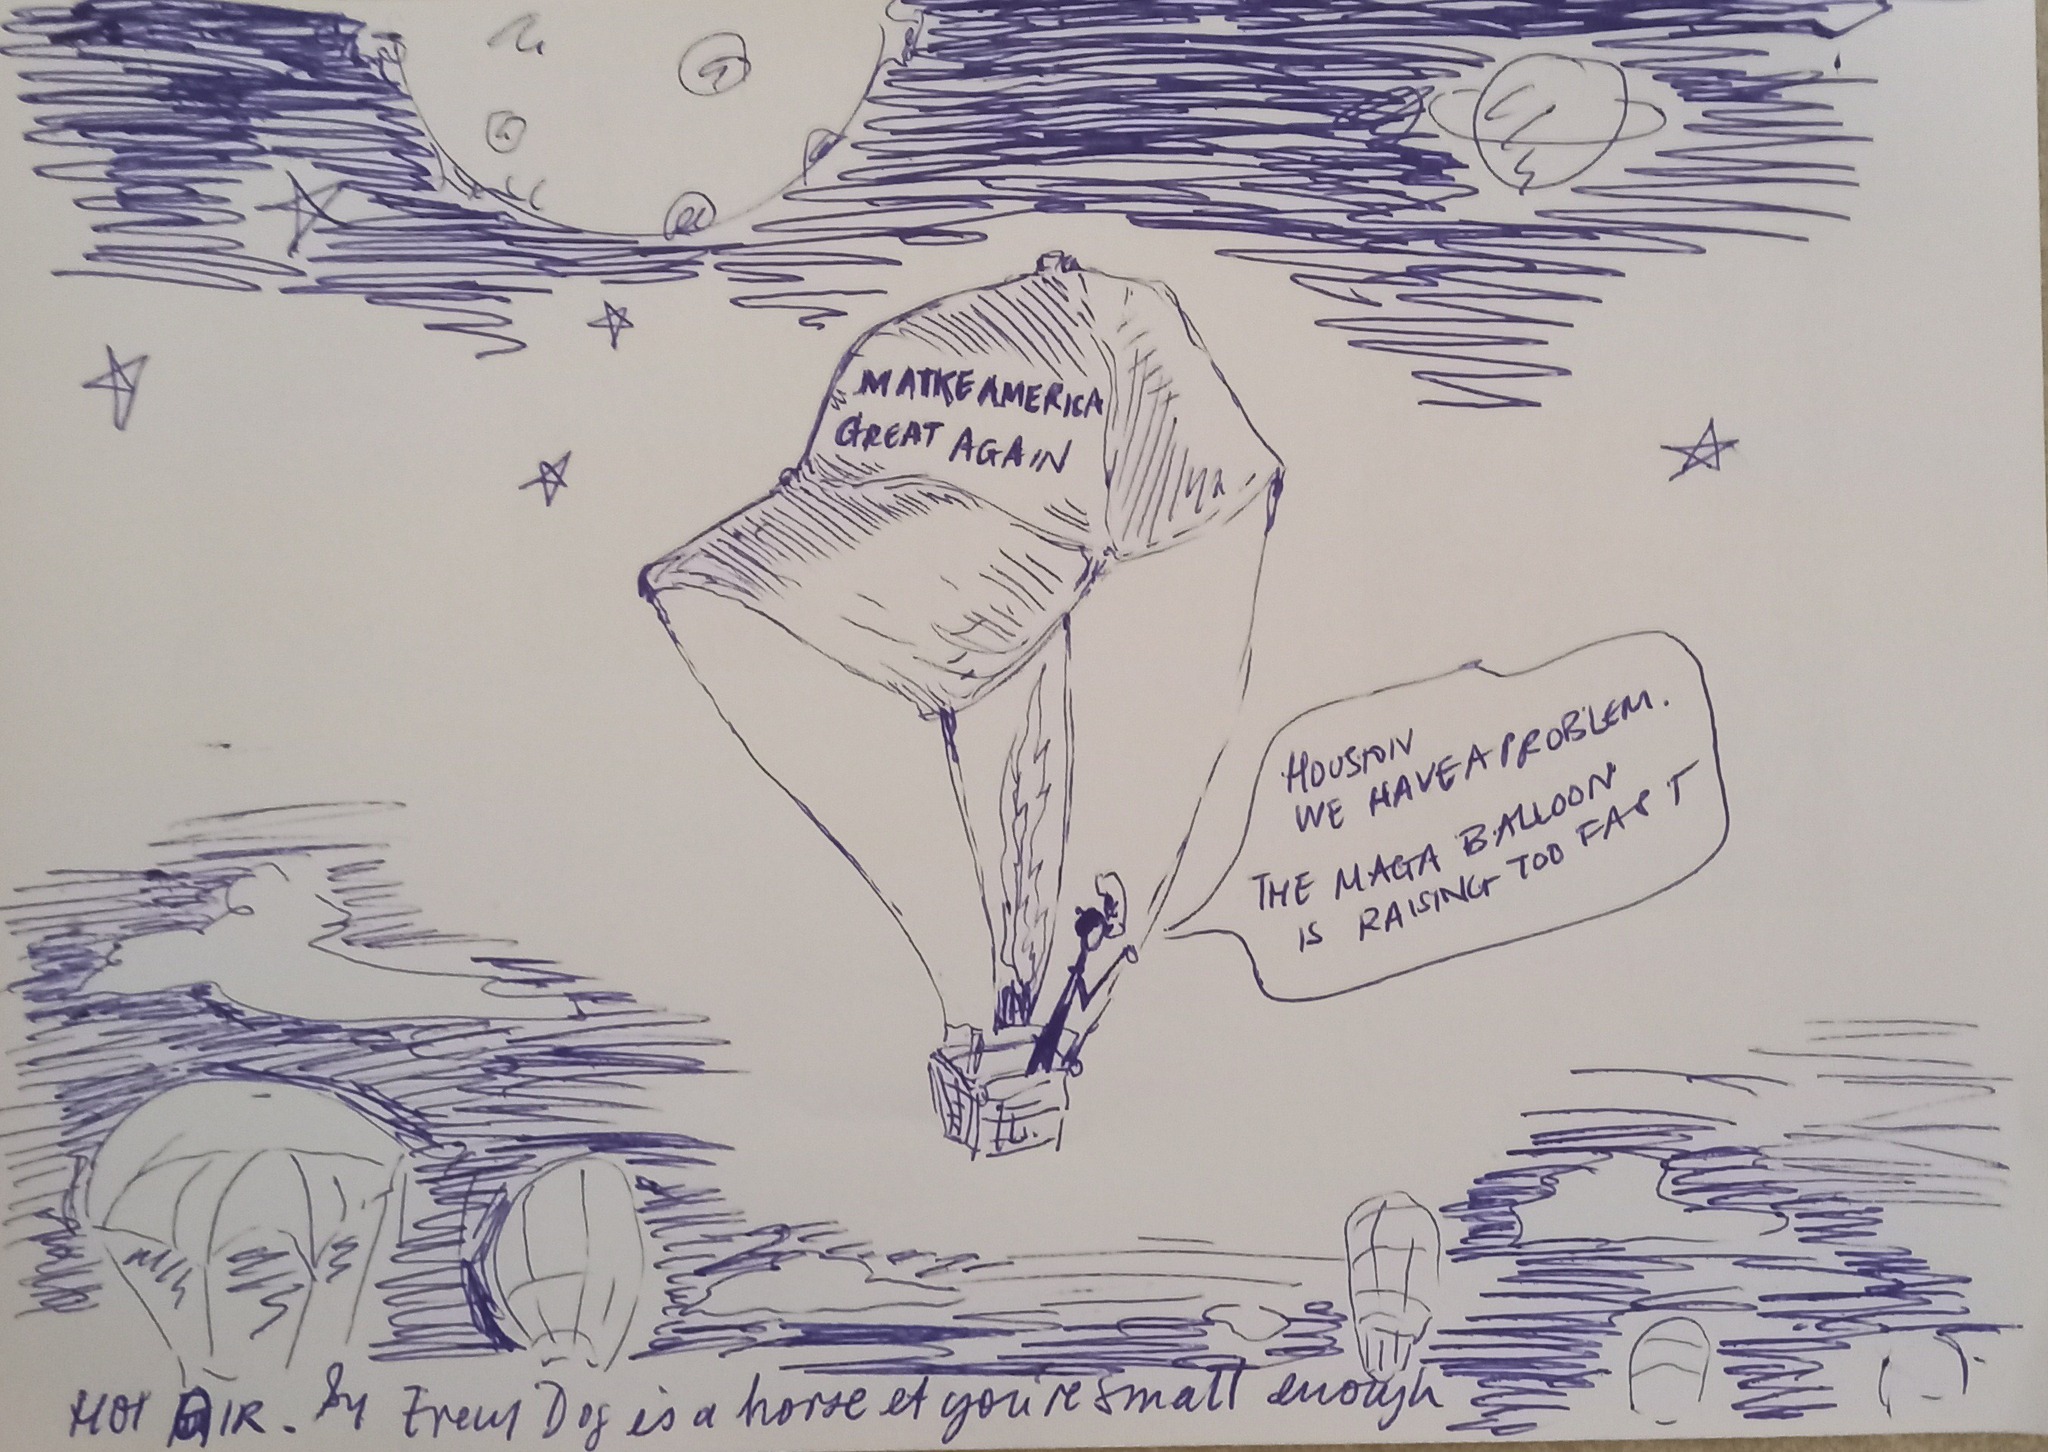 MATKE AMERICA
GREAT AGAIN
HOUSTON
WE HAVE A PROBLEM.
THE MAGA BALLOON
IS RAISING TOO FAST
HOT AIR. By Every Dog is a horse if you're small enough